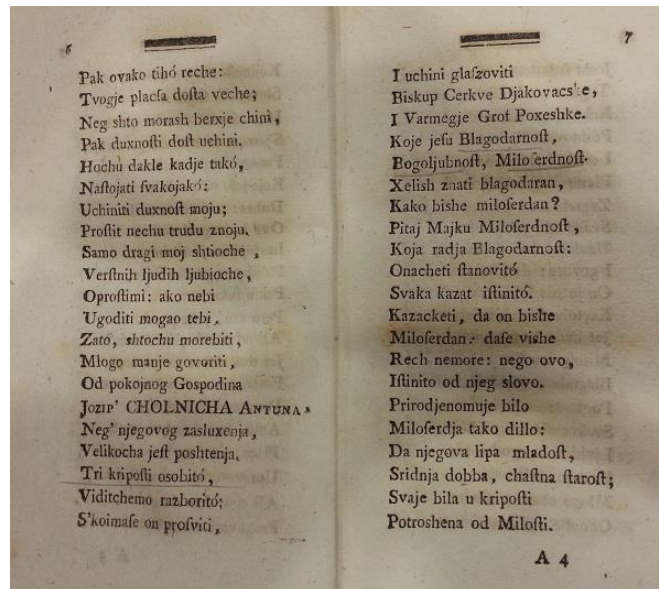 6
Pak ovako tihó reche:
Tvogje placſa doſta veche;
Neg shto morash berxje chinì,
Pak duxnoſti doſt uchini.
Hochu dakle kadje takó,
Naſtojati ſvakojakó:
Uchiniti duxnoſt moju;
Proſtit nechu trudu znoju.
Samo dragi moj shtioche,
Verſtnih ljudih ljubioche,
Oproſtimi: ako nebi
Ugoditi mogao tebi,
Zató, shtochu morebiti,
Mlogo manje govoriti,
Od pokojnog Goſpodina
JOZIP' CHOLNICHA ANTUNA,
Neg' njegovog zasluxenja,
Velikocha jeſt poshtenja.
Tri kripoſti osobitó,
Viditchemo razboritó;
S'koimaſe on proſviti,
7
I uchini glaſzoviti
Biskup Cerkve Djakovacske,
I Varmegje Grof Poxeshke.
Koje jeſu Blagodarnoſt,
Bogoljubnoſt, Miloſerdnoſt.
Xelish znati blagodaran,
Kako bishe miloſerdan?
Pitaj Majku Miloſerdnoſt,
Koja radja Blagodarnoſt:
Onacheti ſtanovitó
Svaka kazat iſtinitó.
Kazacketi, da on bishe
Miloſerdan: daſe vishe
Rech nemore: nego ovo,
Iſtinito od njeg slovo.
Prirodjenomuje bilo
Miloſerdja tako dillo:
Da njegova lipa mladoſt,
Sridnja dobba, chaſtna ſtaroſt;
Svaje bila u kripoſti
Potroshena od Miloſti.
A 4